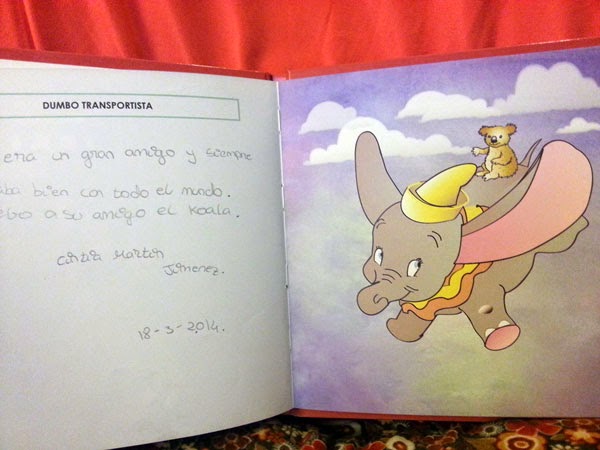 DUMBO TRANSPORTISTA
era un gran amigo y siempre
bien con todo el mundo.
a su amigo el koala.
Cintia Martin
Jimenez.
18-3-2014.